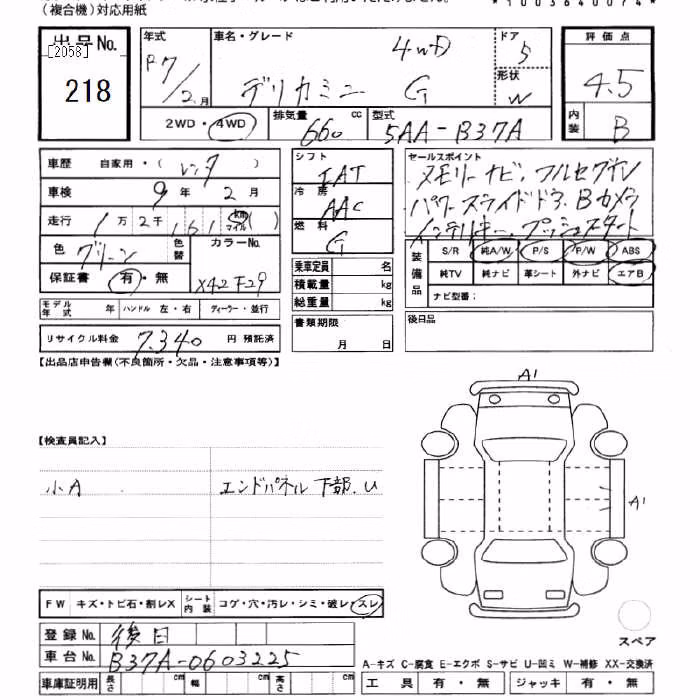 (複合機)対応用紙
*1003640074*
出品No.
[2058]
218
年式
R7/2月
車名・グレード
4WD
デリカミニ G
ドア
5
形状
W
評価点
4.5
内装
B
2WD・4WD
排気量 660 cc
型式 5AA-B37A
車歴 自家用・(レンタ)
車検 9年 2月
走行 1万2千 161 km マイル ( )
色 グリーン
色替
カラーNo. X42 F29
保証書 有・無
モデル年式 年 ハンドル 左・右 ディーラー・並行
リサイクル料金 7,340 円 預託済
シフト IAT
冷房 AAC
燃料 G
乗車定員 名
積載量 kg
総重量 kg
書類期限
月 日
セールスポイント
メモリーナビ.フルセグTV
パワースライドドア.Bカメラ
インテリキー.プッシュスタート
装備品
S/R 純A/W P/S P/W ABS
純TV 純ナビ 革シート 外ナビ エアB
ナビ型番:
後日品
【出品店申告欄(不良箇所・欠品・注意事項等)】
A1
A1
【検査員記入】
小A
エンドパネル下部.U
FW キズ・トビ石・割レX シート内装 コゲ・穴・汚レ・シミ・破レ・スレ
登録No. 後日
車台No. B37A-0603225
車庫証明用 長さ cm 幅 cm 高さ cm
スペア
A-キズ C-腐食 E-エクボ S-サビ U-凹ミ W-補修 XX-交換済
工具 有・無 ジャッキ 有・無